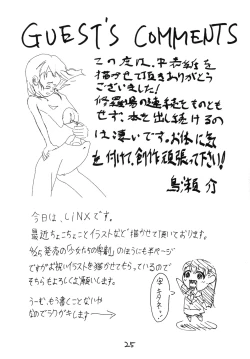 GUEST'S COMMENTS
この度は、平表紙を
描かせて頂きありがとう
ございました!
修羅場の連続をものとも
せず、本を出し続けるの
は凄いです。お体に気
を付けて、創作頑張って下さい!!
鳥瀬 介
今日は、LINXです。
最近ちょこちょことイラストなど描かせて頂いております。
発売の「少女たちの
のほうにも半ページ
ですがお祝いイラストを描かせてもらっているので
そちらもよろしくお願いします。
うーむ、もう書くことないか
なのでラクガキします→
25